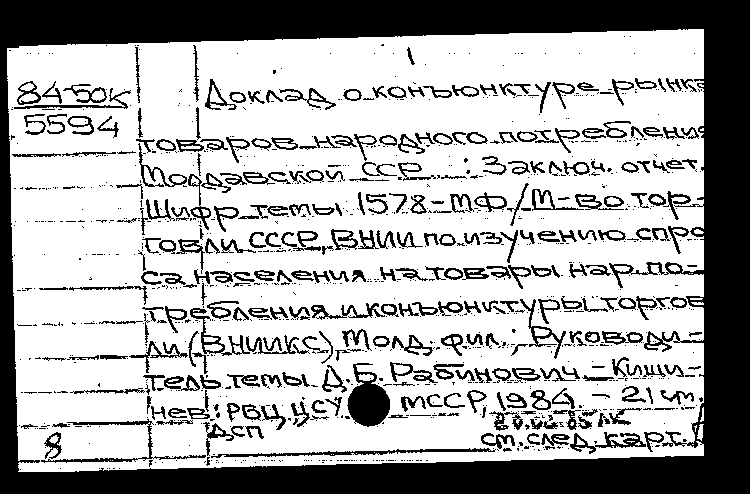 84-50К
5594
Доклад о конъюнктуре рынка
товаров народного потребления
Молдавской ССР : Заключ. отчет.
Шифр темы 1578-МФ / М-во тор-
говли СССР, ВНИИ по изучению спро
са населения на товары нар. по-
требления и конъюнктуры торгов
ли (ВНИИКС), Молд. фил.; Руководи-
тель темы Д.Б. Рабинович. - Киши-
нев: РВЦ ЦСУ МССР, 1984. - 21 см.
ДСП
8
см. след. карт.